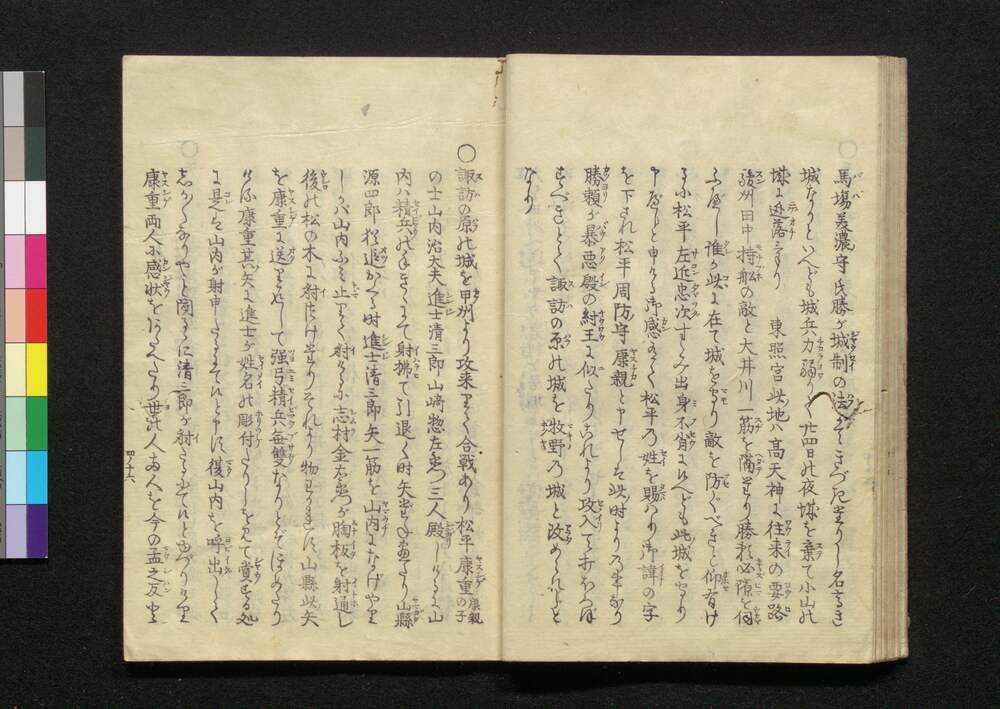 ○馬場美濃守氏勝が城制の法にてきづき出せし名高き
城なりといへども城兵力弱りて廿四日の夜城を棄て小山の
城に逃落たり 東照宮此地ハ高天神に往来の要路
駿州田中持舩の敵と大井川一筋を隔たり勝頼必隙を伺
ふべし誰か此に在て城を守り敵を防ぐべきと仰有け
るに松平左近忠次すゝみ出身不肖にハ候へども此城を守り
申べしと申ける御感ありて松平乃姓を賜ハり御諱の字
を下され松平周防守康親と申せしも此時よりの事なり
勝頼が暴悪殷の紂王に似たりこれより攻入てうちほろぼ
すべきとて諏訪の原の城を牧野乃城と改められしと
なり
○諏訪の原の城を甲州より攻来りて合戦あり松平康重康親の子
の士山内治大夫進士清三郎山﨑惣左衛門三人殿しけるに山
内ハ精兵の手きゝにて射拂て引退く時矢だね盡たり山縣
源四郎猶追かくる時進士清三郎矢一筋を山内になげやり
しかバ山内ふみ止りて射けるに志村金右衛門が胸板を射通し
後の松の木に射付けたりそれより物わかれに山縣此矢
を康重に送りかへして强弓精兵無雙なりとてほめたり
ける康重其矢に進士が姓名の彫付たりしを見て賞する処
に是は山内が射申たるにて候と申に復山内を呼出して
しかるなりやと問るゝに清三郎が射たるにて候とゆづりけり
康重両人に感状をあたへたり世の人両人を今の孟之反と
四ノ十六